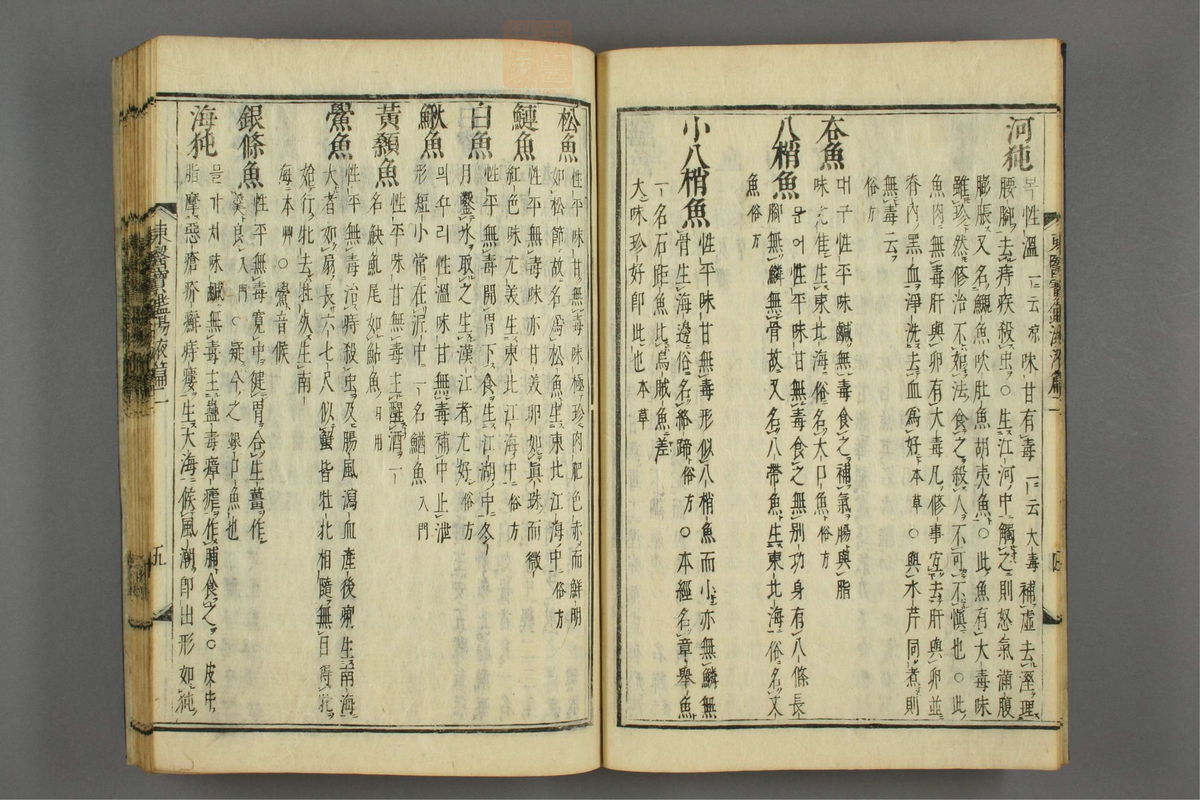 河㹠 복 性溫一云凉味甘有毒一云大毒補虛去濕理
腰脚去痔疾殺虫○生江河中觸之則怒氣滿腹
膨脹又名鯢魚吹肚魚胡夷魚○此魚有大毒味
雖珍然修治不如法食之殺人不可不愼也○此
魚肉無毒肝與卵有大毒凡修事宜去肝與卵並
脊內黑血淨洗去血爲好本草○與水芹同煮則
無毒云
俗方
夻魚 대구 性平味鹹無毒食之補氣腸與脂
味尤佳生東北海俗名大口魚俗方
八梢魚 문어 性平味甘無毒食之無別功身有八條長
脚無鱗無骨故又名八帶魚生東北海俗名文
魚俗方
小八梢魚 性平味甘無毒形似八梢魚而小亦無鱗無
骨生海邊俗名絡蹄俗方○本經名章擧魚
一名石距魚比烏賊魚差
大味珍好卽此也本草
東醫寶鑑湯液篇二 四
松魚 性平味甘無毒味極珍肉肥色赤而鮮明
如松節故名爲松魚生東北江海中俗方
鰱魚 性平無毒味亦甘美卵如眞珠而微
紅色味尤美生東北江海中俗方
白魚 性平無毒開胃下食生江湖中冬
月鑿氷取之生漢江者尤好俗方
鰍魚 믜꾸리 性溫味甘無毒補中止泄
形短小常在泥中一名鰌魚入門
黃顙魚 性平味甘無毒主醒酒一
名 尾如鮎魚日用
鱟魚 性平無毒治痔殺虫及腸風瀉血產後痢生南海
大者如扇長六七尺似蟹皆牡牝相隨無目得牝
始行牝去牡死生南
海本艸○鱟音候
銀條魚 性平無毒寬中健胃合生薑作
羹良入門○疑今之銀口魚也
海㹠 믈가치 味鹹無毒主蠱毒瘴瘧作脯食之○皮中
脂摩惡瘡疥癬痔瘻生大海候風潮卽出形如㹠
東醫寶鑑湯液篇二 五